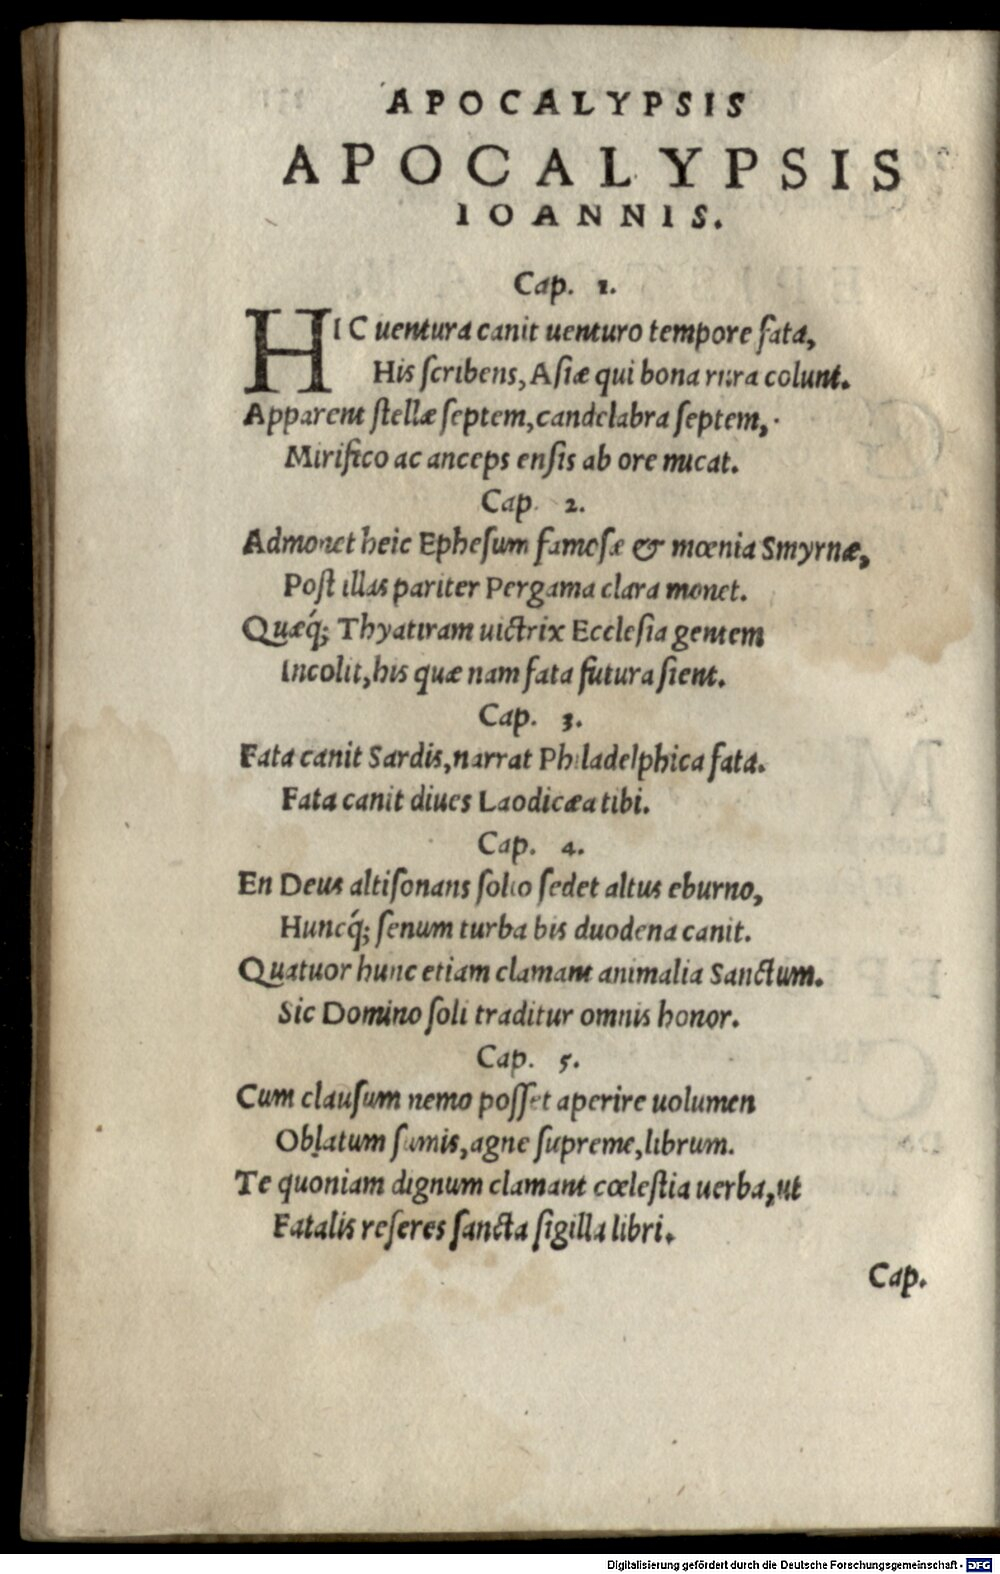 APOCALYPSIS
APOCALYPSIS
IOANNIS.
Cap. 1.
HIC uentura canit uenturo tempore fata,
His ſcribens, Aſiæ qui bona rura colunt.
Apparent ſtellæ ſeptem, candelabra ſeptem,
Mirifico ac anceps enſis ab ore micat.
Cap. 2.
Admonet heic Epheſum famoſæ & mœnia Smyrnæ,
Poſt illas pariter Pergama clara monet.
Quæq́; Thyatiram uictrix Eccleſia gentem
Incolit, his quæ nam fata futura ſient.
Cap. 3.
Fata canit Sardis, narrat Philadelphica fata.
Fata canit diues Laodicæa tibi.
Cap. 4.
En Deus altiſonans ſolio ſedet altus eburno,
Huncq́; ſenum turba bis duodena canit.
Quatuor hunc etiam clamant animalia Sanctum.
Sic Domino ſoli traditur omnis honor.
Cap. 5.
Cum clauſum nemo poſſet aperire uolumen
Oblatum ſumis, agne ſupreme, librum.
Te quoniam dignum clamant cœleſtia uerba, ut
Fatalis reſeres ſancta ſigilla libri.
Cap.
Digitalisierung gefördert durch die Deutsche Forschungsgemeinschaft - DFG